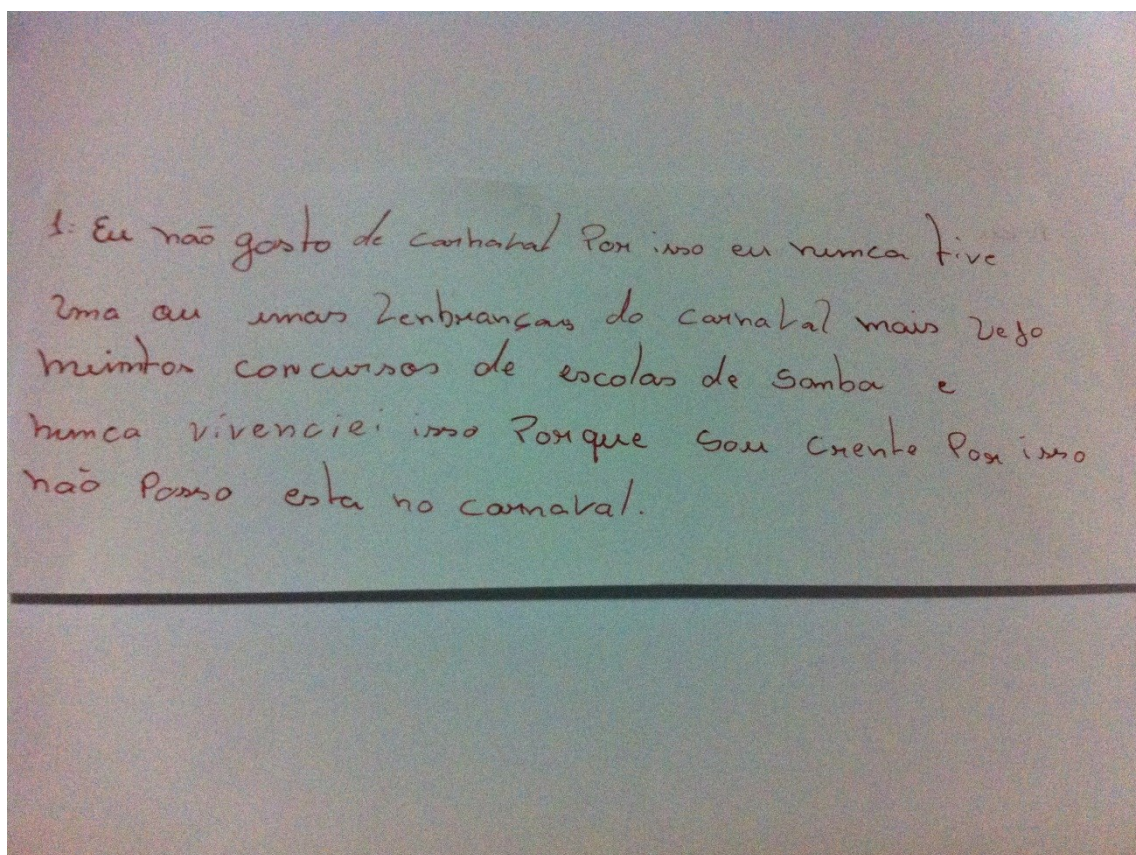 1: Eu não gosto de carnaval Por isso eu numca tive
uma ou umas lenbranças do carnaval mais vejo
muimtos concursos de escolas de Samba e
numca vivenciei isso Porque Sou Crente Por isso
não Posso esta no carnaval.